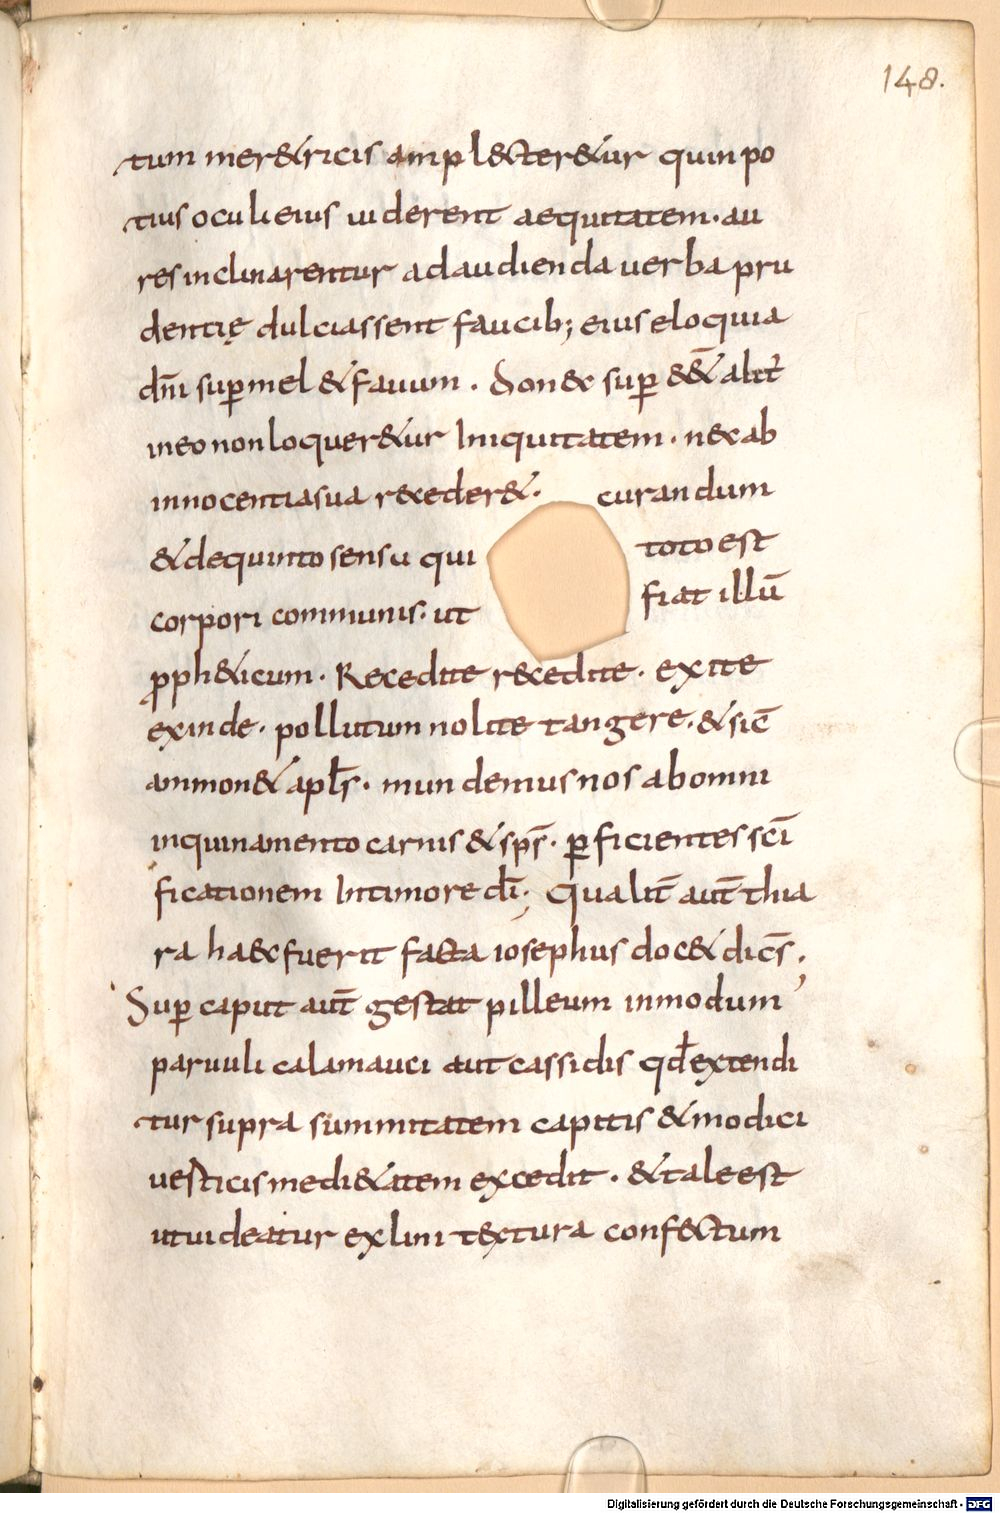 148.
tum mer&ricis amplect&er&ur quin po
tius oculi eius uiderent aequitatem. au
res inclinarentur ad audienda uerba pru
dentię dulciassent faucib; eius eloquia
dni̅ sup mel & fauum. Donec sup e&̅ alit'
in eo non loquer&ur Iniquitatem. nec ab
innocentia sua receder&. curandum
& de quinto sensu qui toto est
corpori communis. ut fiat illu̅
proph&icum. Recedite recedite. exite
exinde. pollutum nolite tangere. & sic̅
ammon& apl̅s. mundemus nos ab omni
inquinamento carnis & sps̅. perficientes sc̅i
ficationem In timore di̅; Qualit̅ aut̅ thia
ra haec fuerit facta iosephus doc& dic̅s.
Sup caput aut̅ gestat pilleum in modum
paruuli calamauci aut cassidis qd̅ extendi
tur supra summitatem capitis & modici
uesticis medi&atem excedit. & tale est
ut uideatur ex lini textura confectum
Digitalisierung gefördert durch die Deutsche Forschungsgemeinschaft - DFG